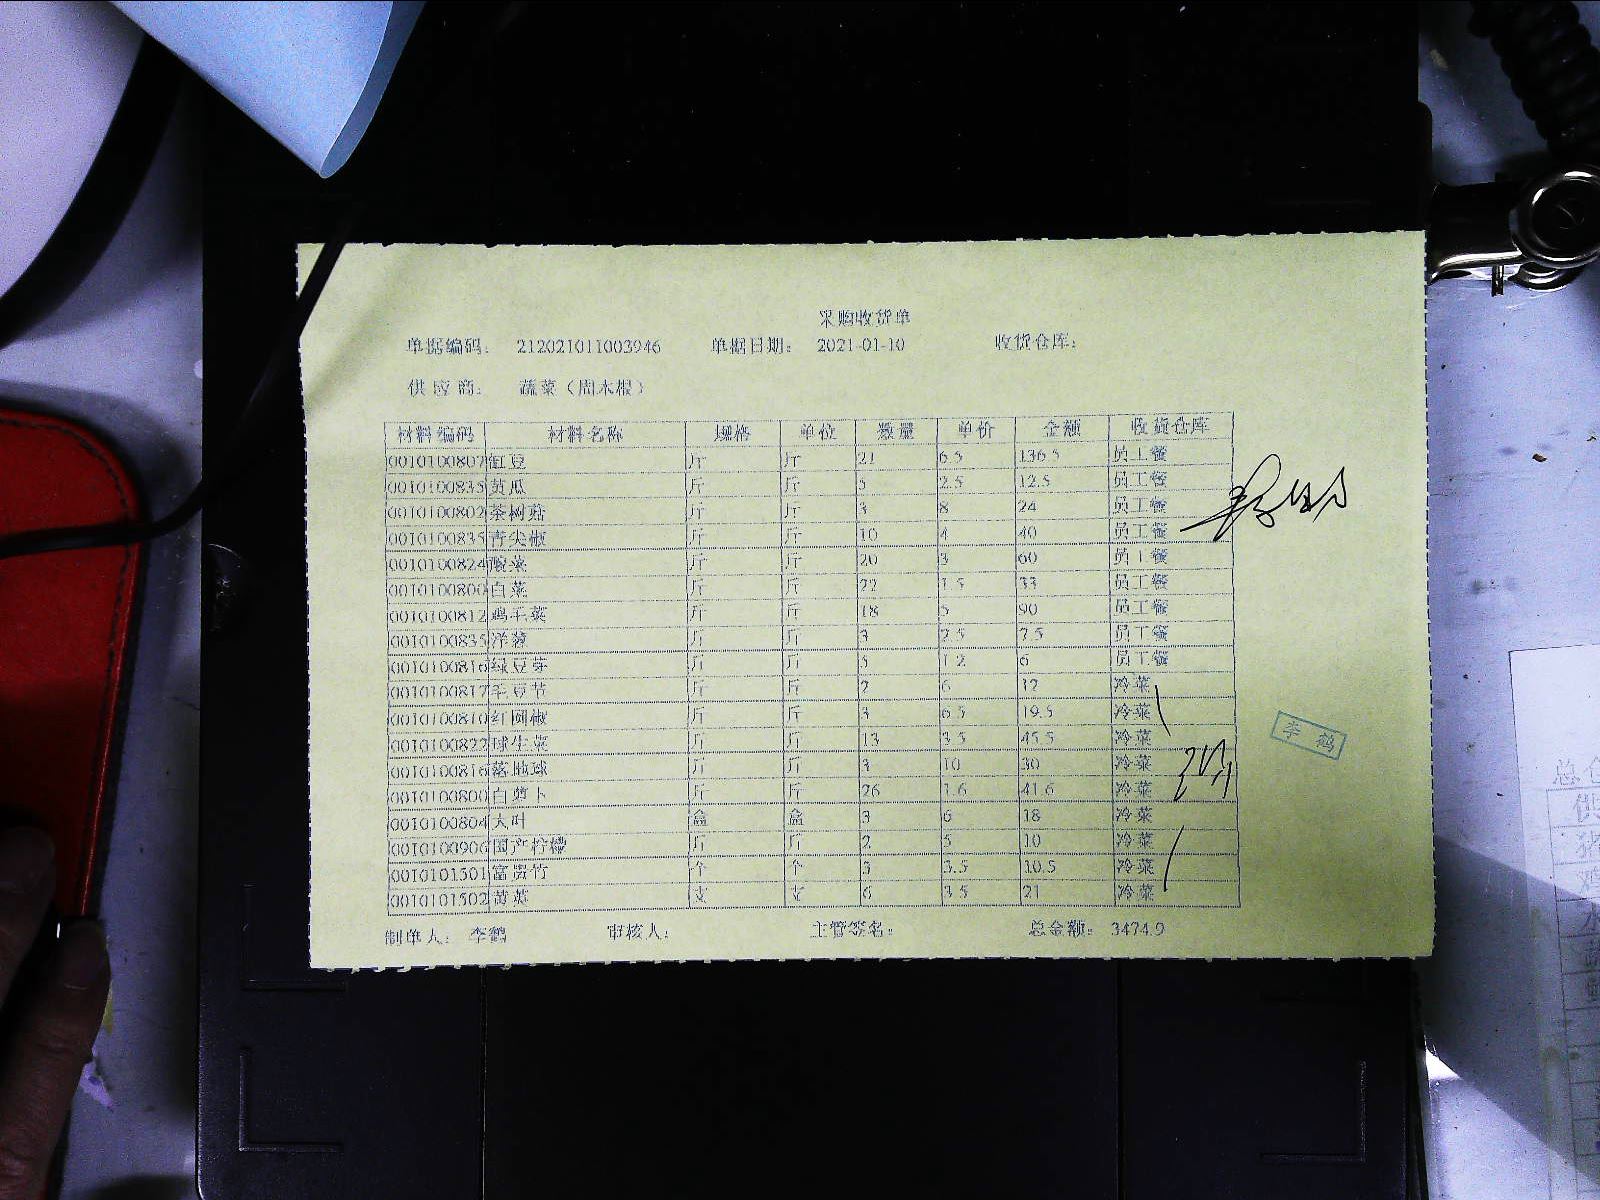 采购收货单
单据编码: 212021011003946 单据日期: 2021-01-10 收货仓库:
供应商: 蔬菜(周木根)
材料编码 材料名称 规格 单位 数量 单价 金额 收货仓库
0010100807 豇豆 斤 斤 21 6.5 136.5 员工餐
0010100835 黄瓜 斤 斤 5 2.5 12.5 员工餐
0010100802 茶树菇 斤 斤 3 8 24 员工餐
0010100835 青尖椒 斤 斤 10 4 40 员工餐
0010100824 酸菜 斤 斤 20 3 60 员工餐
0010100800 白菜 斤 斤 22 1.5 33 员工餐
0010100812 鸡毛菜 斤 斤 18 5 90 员工餐
0010100835 洋葱 斤 斤 3 2.5 7.5 员工餐
0010100816 绿豆芽 斤 斤 5 1.2 6 员工餐
0010100817 毛豆节 斤 斤 2 6 12 冷菜
0010100810 红圆椒 斤 斤 3 6.5 19.5 冷菜
0010100822 球生菜 斤 斤 13 3.5 45.5 冷菜
0010100816 落地球 斤 斤 3 10 30 冷菜
0010100800 白萝卜 斤 斤 26 1.6 41.6 冷菜
0010100804 大叶 盒 盒 3 6 18 冷菜
0010100906 国产柠檬 斤 斤 2 5 10 冷菜
0010101501 富贵竹 个 个 3 3.5 10.5 冷菜
0010101502 黄英 支 支 6 3.5 21 冷菜
李鹤
制单人: 李鹤 审核人: 主管签名: 总金额: 3474.9
总仓